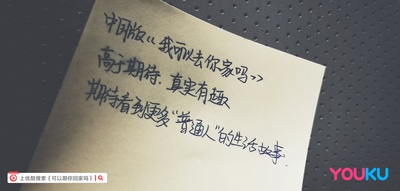 中国版《我可以去你家吗》
高于期待 真实有趣
期待看到更多“普通人”的生活故事.
上优酷搜索《可以跟你回家吗》
YOUKU